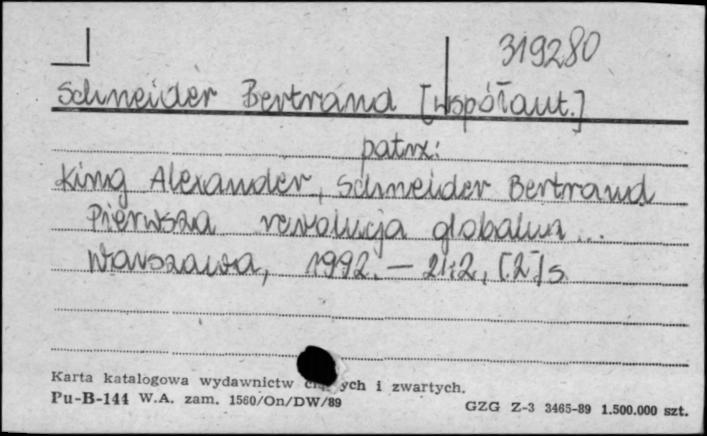 319280
Schneider Bertrand [współaut.]
patrz:
King Alexander, Schneider Bertrand
Pierwsza rewolucja globalna...
Warszawa, 1992. — 212, [2] s
Karta katalogowa wydawnictw ych i zwartych.
Pu-B-144 W.A. zam. 1560/On/DW/89
GZG Z-3 3465-89 1.500.000 szt.